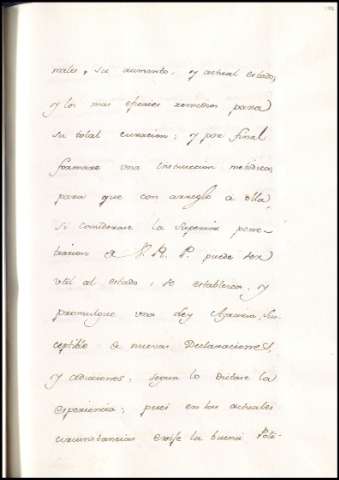 males, su aumento, y actual estado,
y los mas eficaces remedios para
su total curacion; y por final
formare una Instruccion metódica,
para que con arreglo a ella,
si considerase la superior pene-
tracion de V. A. P. puede ser
util al estado, se establezca, y
promulgue una Ley Agraria, sus-
ceptible de nuevas Declaraciones,
y adiciones, segun lo dictare la
Esperiencia; pues en las actuales
circunstancias exije la buena Poli-